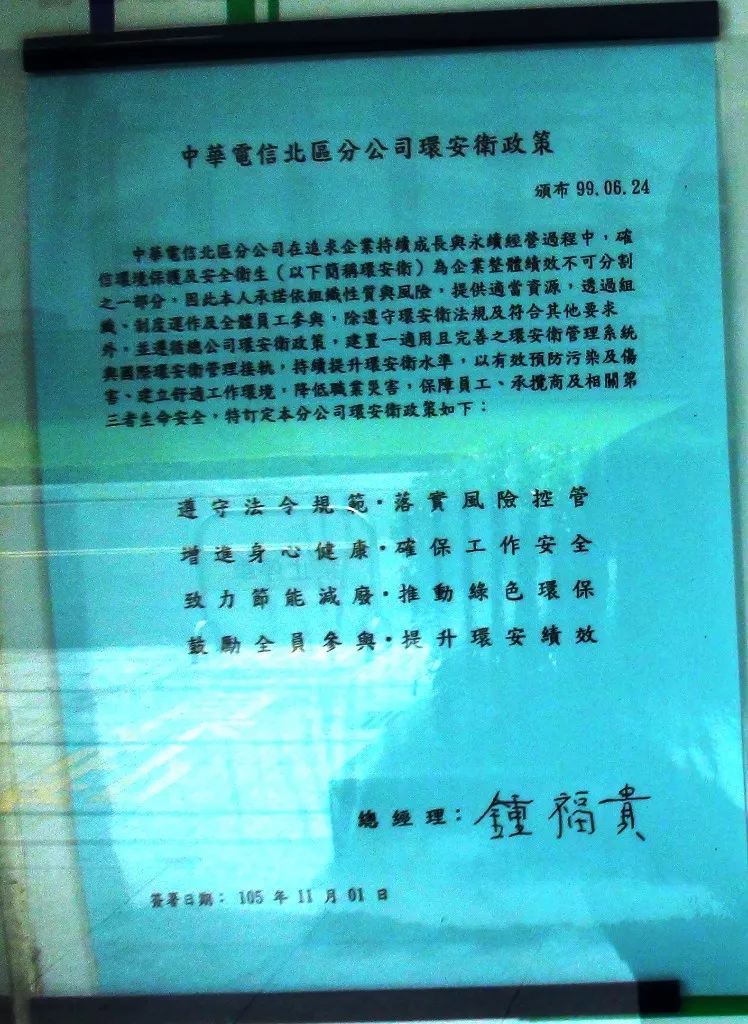 中華電信北區分公司環安衛政策
頒布 99.06.24
中華電信北區分公司在追求企業持續成長與永續經營過程中，確
信環境保護及安全衛生（以下簡稱環安衛）為企業整體績效不可分割
之一部分，因此本人承諾依組織性質與風險，提供適當資源，透過組
織、制度運作及全體員工參與，除遵守環安衛法規及符合其他要求
外，並遵循總公司環安衛政策，建置一適用且完善之環安衛管理系統
與國際環安衛管理接軌，持續提升環安衛水準，以有效預防污染及傷
害、建立舒適工作環境，降低職業災害，保障員工、承攬商及相關第
三者生命安全，特訂定本分公司環安衛政策如下：
遵守法令規範·落實風險控管
增進身心健康·確保工作安全
致力節能減廢·推動綠色環保
鼓勵全員參與·提升環安績效
總經理：鍾福貴
簽署日期：105 年 11 月 01 日